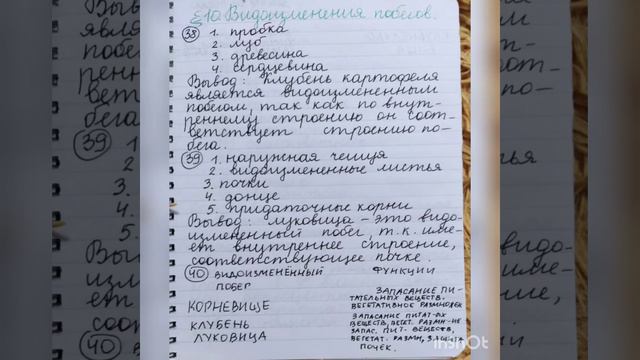 §10. Видоизменения побегов.
38 1. пробка
2. луб
3. древесина
4. сердцевина
Вывод: Клубень картофеля
является видоизмененным
побегом, так как по внут-
реннему строению он соот-
ветствует строению по-
бега.
39 1. наружная чешуя
2. видоизмененные листья
3. почки
4. донце
5. придаточные корни
Вывод: луковица - это видо-
измененный побег, т.к. име-
ет внутреннее строение,
соответствующее почке.
40 ВИДОИЗМЕНЁННЫЙ ФУНКЦИИ
ПОБЕГ
КОРНЕВИЩЕ ЗАПАСАНИЕ ПИ-
ТАТЕЛЬНЫХ ВЕЩЕСТВ.
ВЕГЕТАТИВНОЕ РАЗМНОЖЕН
КЛУБЕНЬ ЗАПАСАНИЕ ПИТАТ-ЫХ
ВЕЩЕСТВ, ВЕГЕТ. РАЗМН-ИЕ
ЛУКОВИЦА ЗАПАС. ПИТ. ВЕЩЕСТВ,
ВЕГЕТАТ. РАЗМН, ЗАЩИТА
ПОЧЕК.
InShot